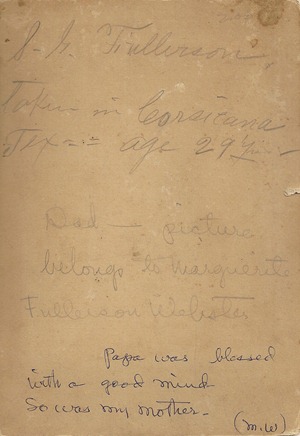 S. G. Fullerson,
taken in Corsicana
Tex -:- age 29 Yrs -
Dad — picture
belongs to Marguerite
Fullerson Webster
Papa was blessed
with a good mind
So was my mother -
(M.W)